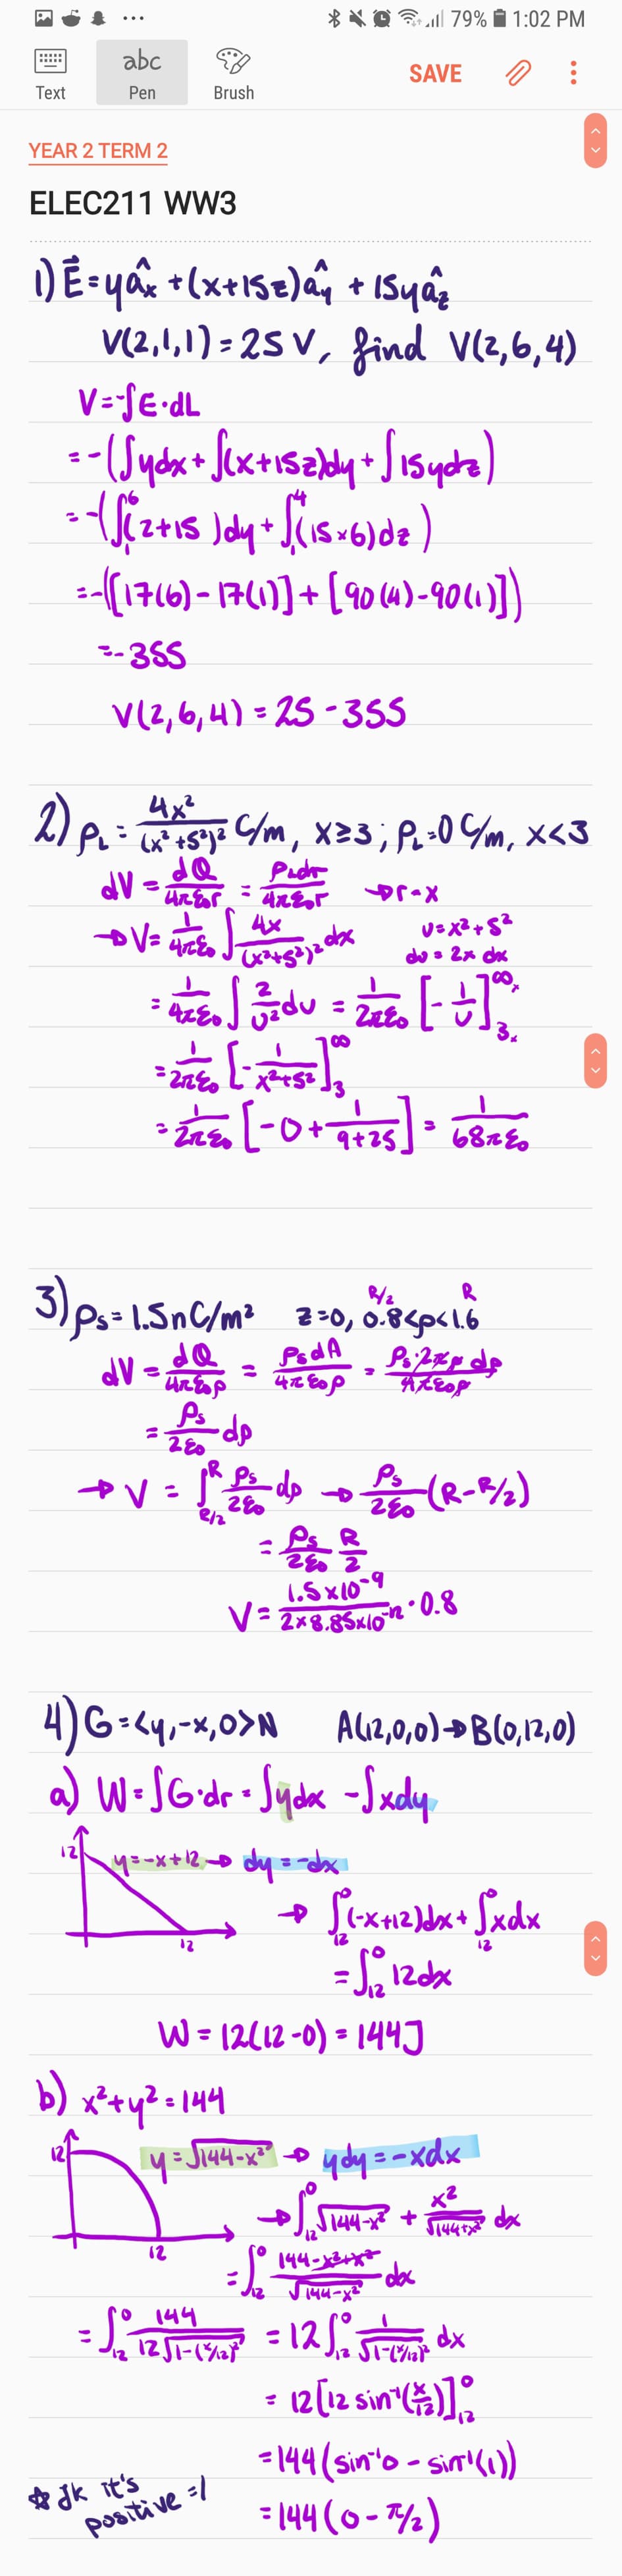 79% 1:02 PM
Text
abc
Pen
Brush
SAVE
YEAR 2 TERM 2
ELEC211 WW3
1) E⃗ = yâx + (x+15z)ây + 15yâz
V(2,1,1) = 25 V, find V(2,6,4)
V = -∫E·dL
= -(∫ydx + ∫(x+15z)dy + ∫15ydz)
= -(∫₁⁶(2+15 )dy + ∫₁⁴(15×6)dz)
= -([17(6) - 17(1)] + [90(4) - 90(1)])
= -355
V(2,6,4) = 25 - 355
2) ρL = 4x²/(x²+5²)² C/m, x≥3; ρL=0 C/m, x<3
dV = dQ/4πε₀r = ρLdr/4πε₀r → r=x
→ V = 1/4πε₀ ∫ 4x/(x²+5²)² dx u = x²+5²
du = 2x dx
= 1/4πε₀ ∫ 2/u² du = 1/2πε₀ [-1/u]^∞ₓ ₃ₓ
= 1/2πε₀ [-1/(x²+5²)]₃^∞
= 1/2πε₀ [-0 + 1/(9+25)] = 1/68πε₀
3) ρs = 1.5nC/m² z=0, 0.8<ρ<1.6 R/2 R
dV = dQ/4πε₀ρ = ρsdA/4πε₀ρ = ρs·2πρ dρ/4πε₀ρ
= ρs/2ε₀ dρ
→ V = ∫_{R/2}^{R} ρs/2ε₀ dρ → ρs/2ε₀ (R-R/2)
= ρs/2ε₀ R/2
V = 1.5×10⁻⁹/2×8.85×10⁻¹² · 0.8
4) G = <y,-x,0>N A(12,0,0)→B(0,12,0)
a) W = ∫G·dr = ∫ydx - ∫xdy
12 y=-x+12 → dy=-dx
12
→ ∫₁₂⁰(-x+12)dx + ∫₁₂⁰xdx
= ∫₁₂⁰ 12dx
W = 12(12-0) = 144J
b) x²+y² = 144
12 y=√(144-x²) → ydy=-xdx
12
→ ∫₁₂⁰ √(144-x²) + x²/√(144+x²) dx
= ∫₁₂⁰ (144-x²+x²)/√(144-x²) dx
= ∫₁₂⁰ 144/12√(1-(x/12)²) = 12∫₁₂⁰ 1/√(1-(x/12)²) dx
= 12[12 sin⁻¹(x/12)]₁₂⁰
= 144(sin⁻¹0 - sin⁻¹(1))
= 144(0 - π/2)
☆ jk it's
positive =)